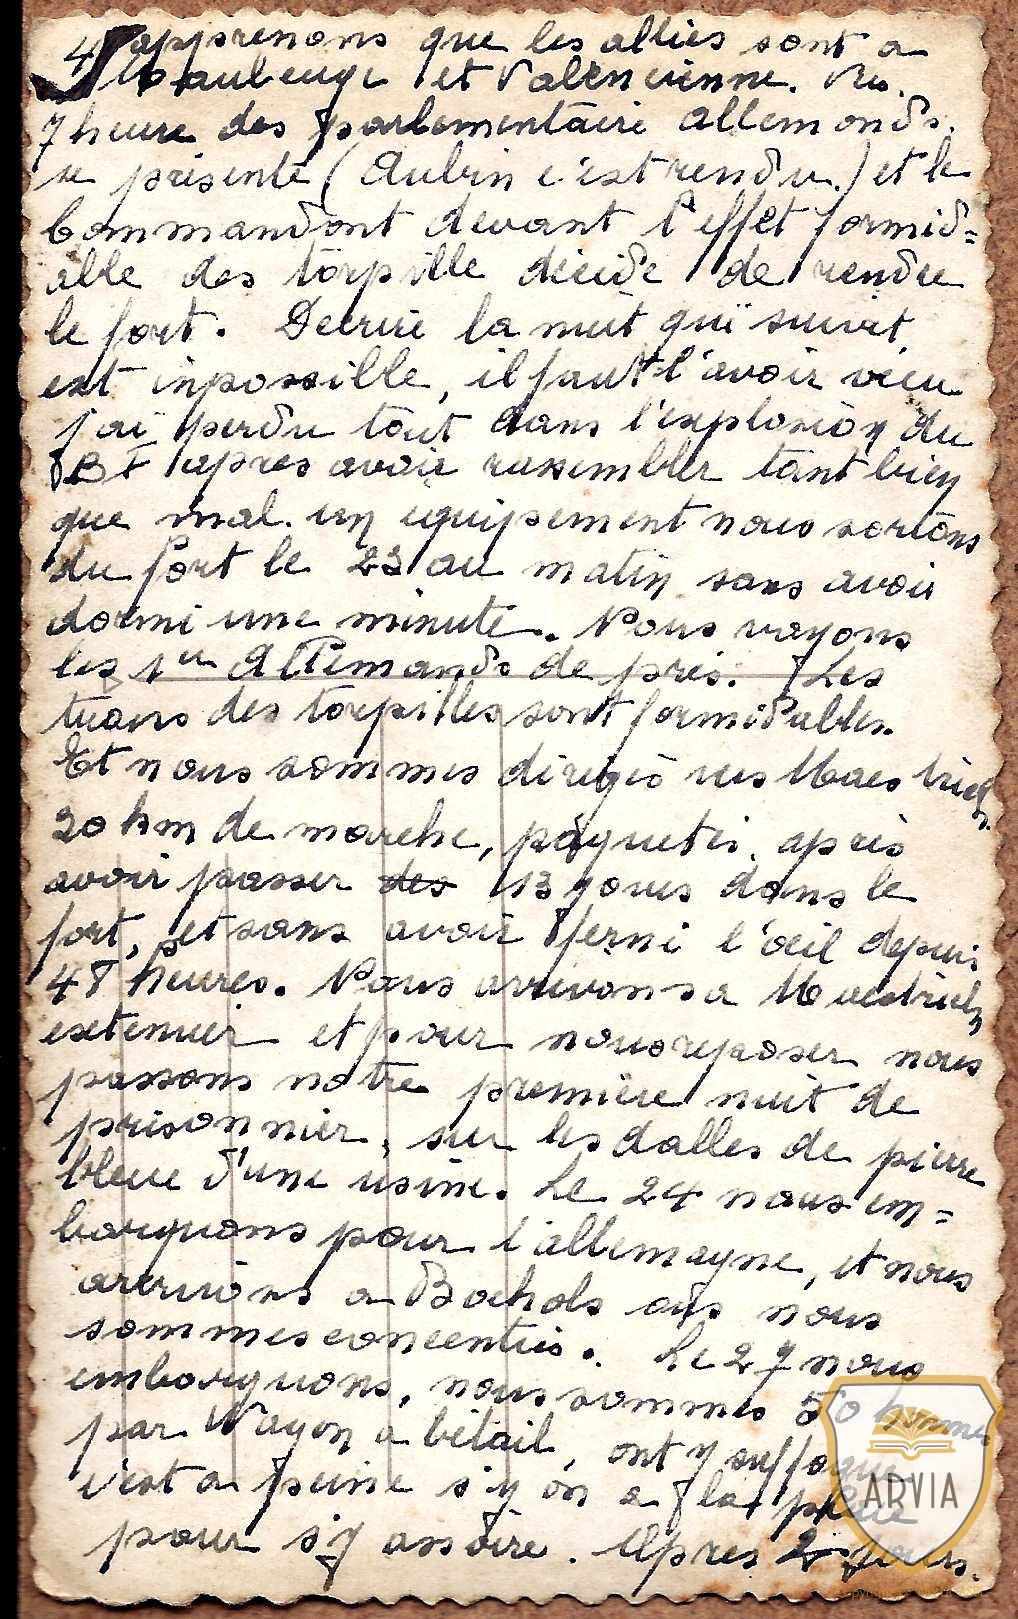 4 apprenons que les alliés sont a
Maubeuge et Valencienne. Vers.
7 heure des parlementaire allemands.
se présente (Aubin c'est rendu.) et le
Commandant devant l'effet formid=
able des torpille décide de rendre
le fort. Decrire la nuit qui suivit,
est inpossible, il faut l'avoir vecu
j'ai perdu tout dans l'explosion du
BI après avoir rassembler tant bien
que mal un équipement nous sortons
du fort le 23 au matin sans avoir
dormi une minute. Nous voyons
les 1er Allemands de près. Les
trous des torpilles sont formidables.
Et nous sommes dirigés vers Maestricht
20 km de marche, paquetés, après
avoir passer des 13 jours dans le
fort, et sans avoir fermi l'œil depuis
48 heures. Nous arrivons a Maestricht
extenuér et pour nous reposer nous
passons notre première nuit de
prisonnier, sur les dalles de pierre
bleue d'une usine. Le 24 nous em=
barquons pour l'allemagne, et nous
arrivons a Bochols ous nous
sommes concentrés. Le 27 nous
embarquons, nous sommes 50 hommes
par Wagon a bétail, ont y suffoque
c'est a peine s'y on a la place
pour s'y assoire. Après 2 jours.
ARVIA